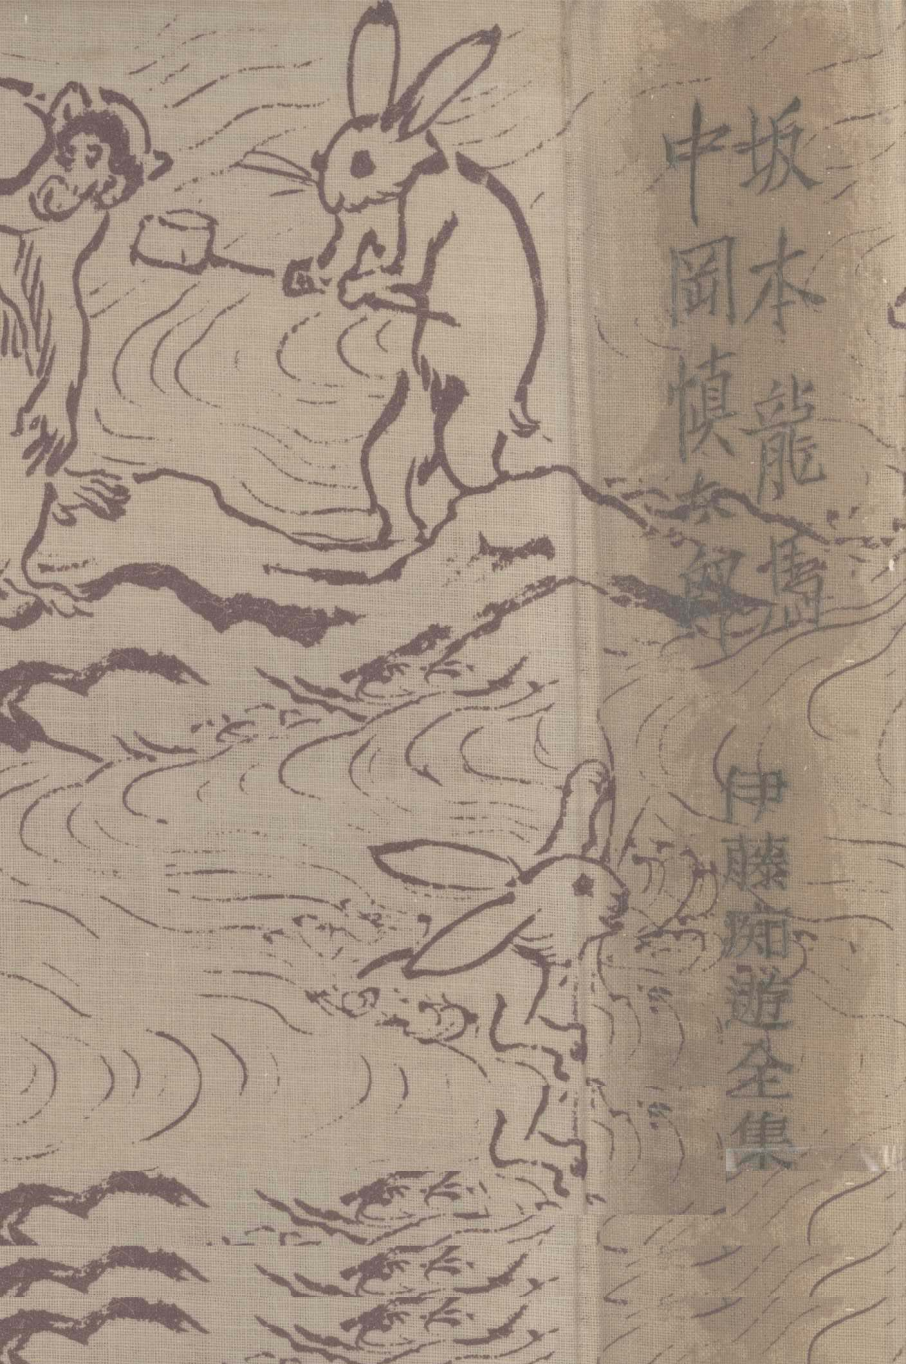 坂本龍馬
中岡慎太郎
伊藤痴遊全集